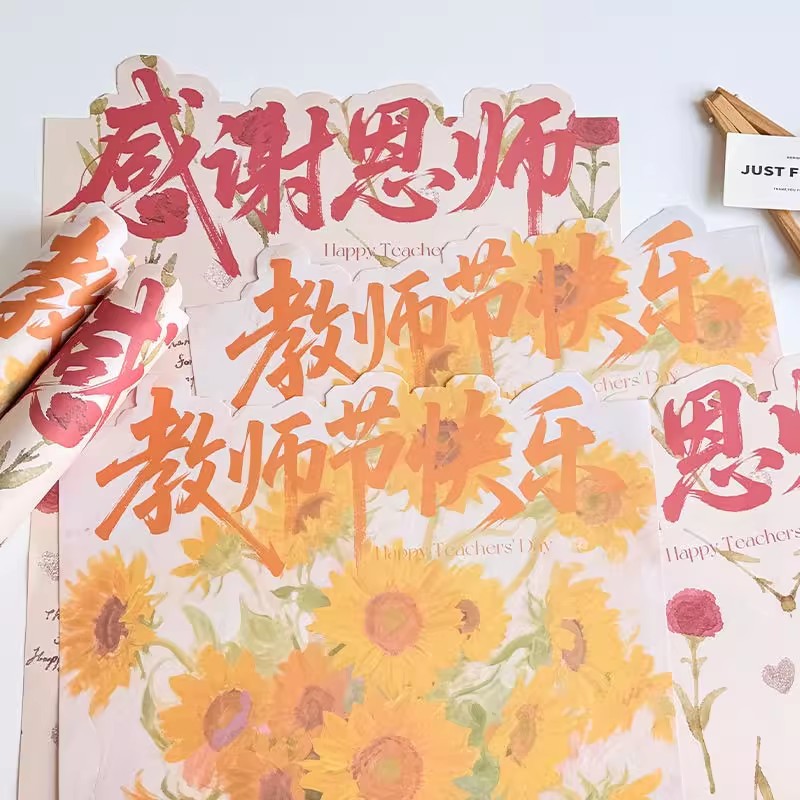 感谢恩师
Happy Teache
教师节快乐
chers' Day
教师节快乐
Happy Teachers' Day
恩
Happy Teachers
教
感
JUST F